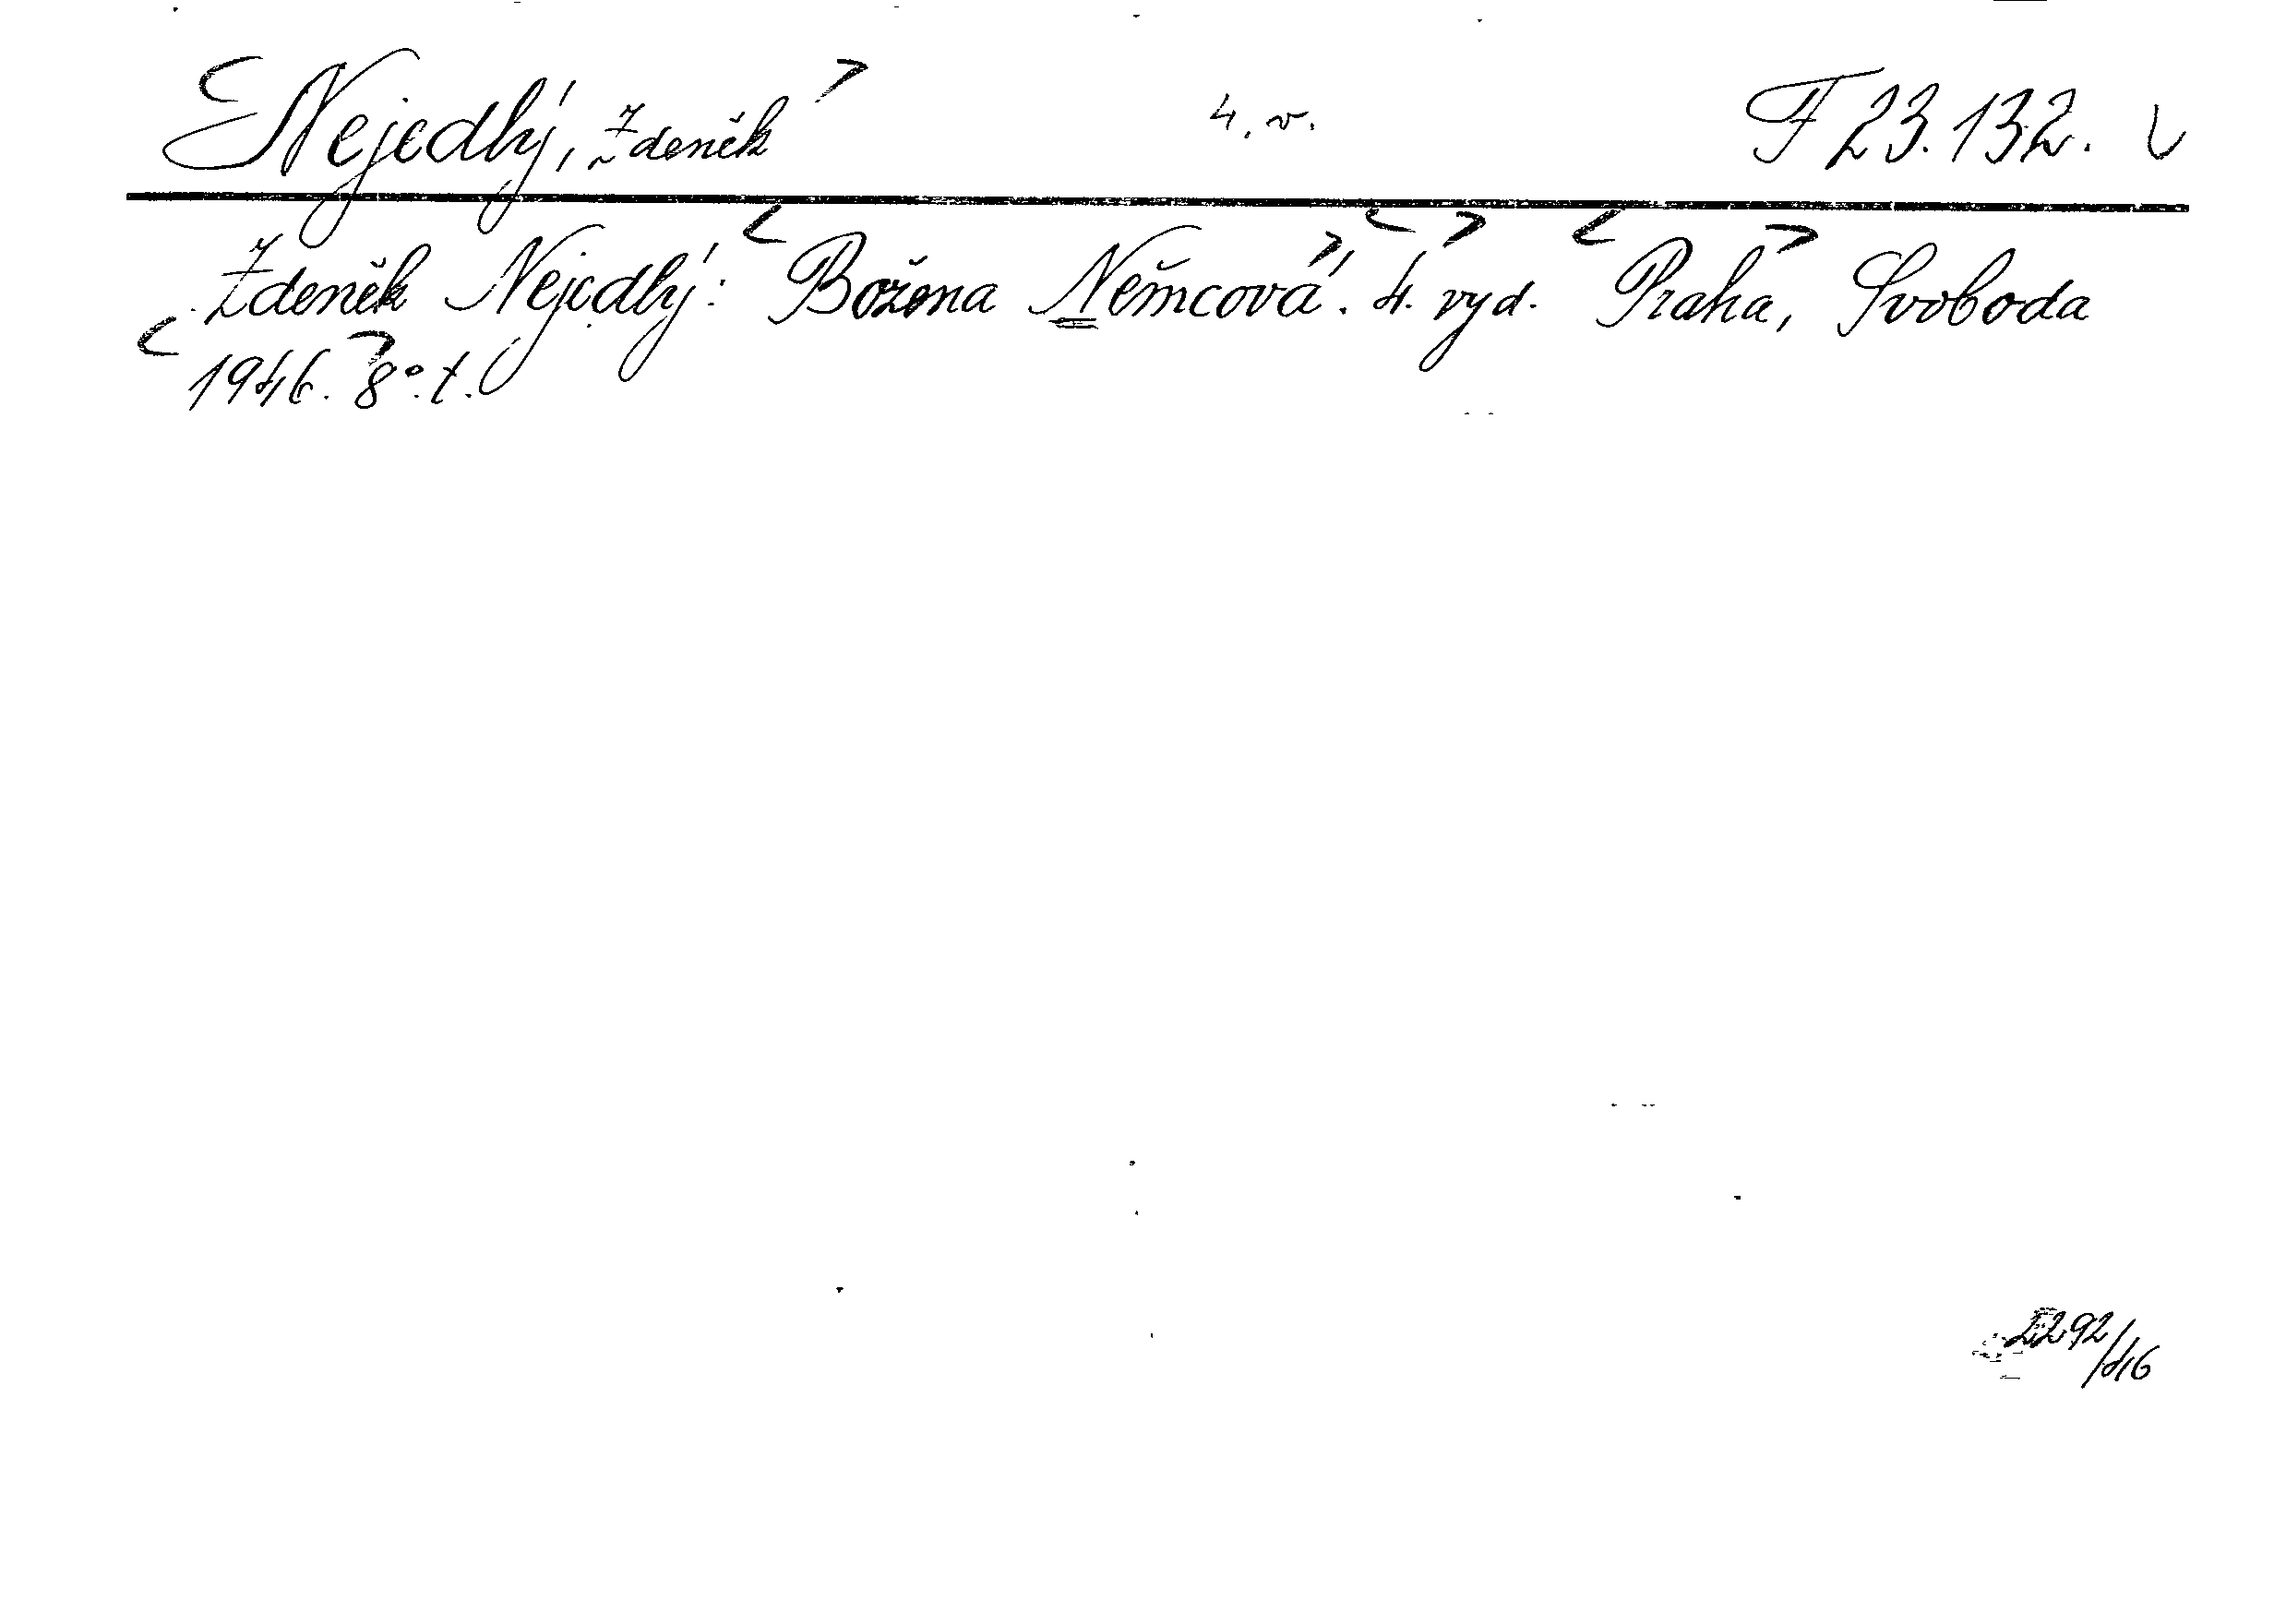 <Nejedlý, Zdeněk> 4. v. F 23.132. v
Zdeněk Nejedlý: <Božena Němcová>. <4.> vyd. <Praha>, Svoboda
<1946.> 8°. t.
2292/46